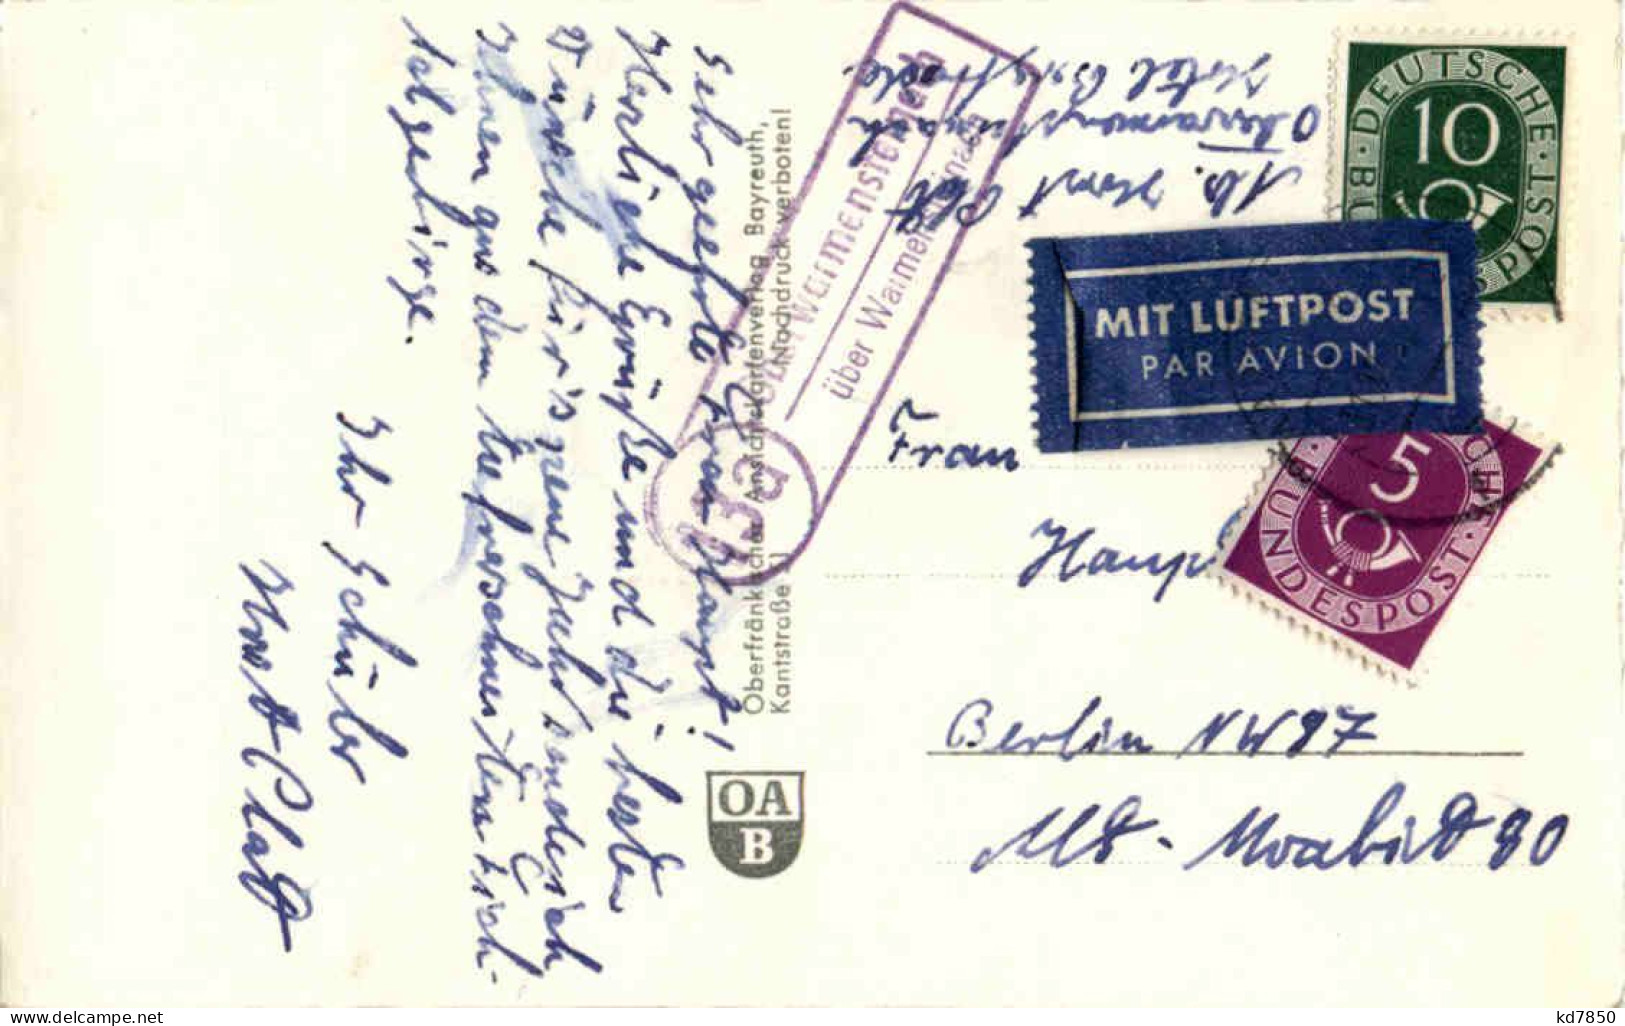 Sehr geehrte Frau Haupt!
Herzliche Grüße und die besten
Wünsche für's neue Jahr sendet sich
Ihnen aus dem tiefverschneiten Fich-
telgebirge.
Ihr Schüler
Horst Platt
Oberfränkischer Ansichtskartenverlag Bayreuth,
Kantstraße 11 Nachdruck verboten!
OA
B
13a
Oberwarmensteinach
über Warmensteinach
Abs. Horst Platt
Oberwarmensteinach
Hotel
DEUTSCHE BUNDESPOST
10
MIT LUFTPOST
PAR AVION
5
BUNDESPOST
Frau
Haup
Berlin NW 87
Alt-Moabit 80
www.delcampe.net
kd7850